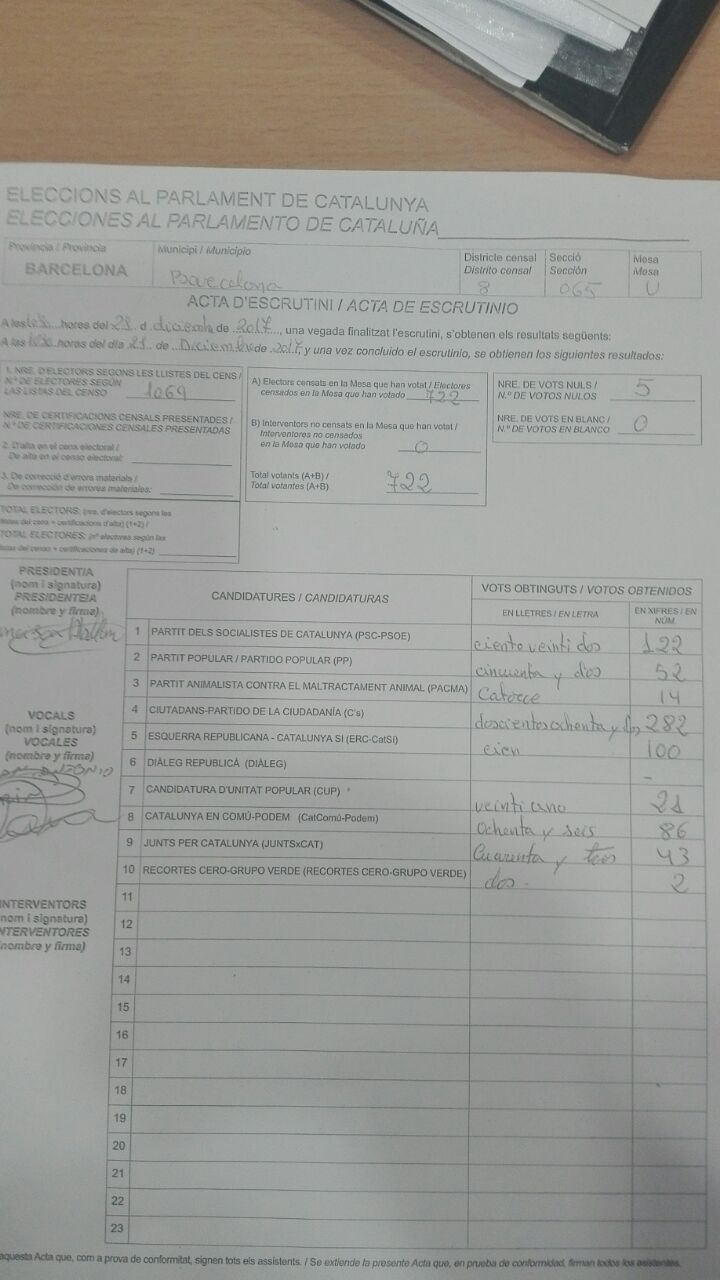 ELECCIONS AL PARLAMENT DE CATALUNYA
ELECCIONES AL PARLAMENTO DE CATALUÑA
Provincia / Provincia
BARCELONA
Municipi / Municipio
Barcelona
Districte censal
Distrito censal
8
Secció
Sección
065
Mesa
Mesa
U
ACTA D'ESCRUTINI / ACTA DE ESCRUTINIO
A les hores del 21 d de 2017, una vegada finalitzat l'escrutini, s'obtenen els resultats següents:
A las horas del día 21 de Diciembre de 2017, y una vez concluido el escrutinio, se obtienen los siguientes resultados:
1. NRE. D'ELECTORS SEGONS LES LLISTES DEL CENS /
N.º DE ELECTORES SEGÚN
LAS LISTAS DEL CENSO 1069
NRE. DE CERTIFICACIONS CENSALS PRESENTADES /
N.º DE CERTIFICACIONES CENSALES PRESENTADAS
2. D'alta en el cens electoral /
De alta en el censo electoral:
3. De correcció d'errors materials /
De corrección de errores materiales:
TOTAL ELECTORS: (nre. d'electors segons les
llistes del cens + certificacions d'alta) (1+2) /
TOTAL ELECTORES: (nº electores según las
listas del censo + certificaciones de alta) (1+2)
A) Electors censats en la Mesa que han votat / Electores
censados en la Mesa que han votado 722
B) Interventors no censats en la Mesa que han votat /
Interventores no censados
en la Mesa que han votado 0
Total votants (A+B) /
Total votantes (A+B) 722
NRE. DE VOTS NULS /
N.º DE VOTOS NULOS 5
NRE. DE VOTS EN BLANC /
N.º DE VOTOS EN BLANCO 0
PRESIDENT/A
(nom i signatura)
PRESIDENTE/A
(nombre y firma)
VOCALS
(nom i signatura)
VOCALES
(nombre y firma)
INTERVENTORS
(nom i signatura)
INTERVENTORES
(nombre y firma)
CANDIDATURES / CANDIDATURAS
VOTS OBTINGUTS / VOTOS OBTENIDOS
EN LLETRES / EN LETRA
EN XIFRES / EN NÚM
1 PARTIT DELS SOCIALISTES DE CATALUNYA (PSC-PSOE) ciento veinti dos 122
2 PARTIT POPULAR / PARTIDO POPULAR (PP) cincuenta y dos 52
3 PARTIT ANIMALISTA CONTRA EL MALTRACTAMENT ANIMAL (PACMA) Catorce 14
4 CIUTADANS-PARTIDO DE LA CIUDADANÍA (C's) doscientos ochenta y dos 282
5 ESQUERRA REPUBLICANA - CATALUNYA SI (ERC-CatSí) cien 100
6 DIÀLEG REPUBLICÀ (DIÀLEG) -
7 CANDIDATURA D'UNITAT POPULAR (CUP) veintiuno 21
8 CATALUNYA EN COMÚ-PODEM (CatComú-Podem) Ochenta y seis 86
9 JUNTS PER CATALUNYA (JUNTSxCAT) Cuarenta y tres 43
10 RECORTES CERO-GRUPO VERDE (RECORTES CERO-GRUPO VERDE) dos. 2
11
12
13
14
15
16
17
18
19
20
21
22
23
aquesta Acta que, com a prova de conformitat, signen tots els assistents. / Se extiende la presente Acta que, en prueba de conformidad, firman todos los asistentes.